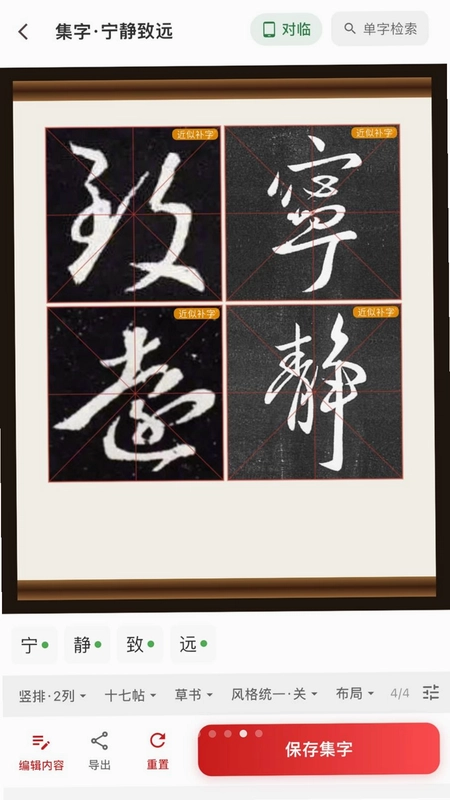 集字·宁静致远
对临
单字检索
近似补字
近似补字
致 寧
近似补字
近似补字
遠 静
宁
静
致
远
竖排·2列
十七帖
草书
风格统一·关
布局
4/4
编辑内容
导出
重置
保存集字